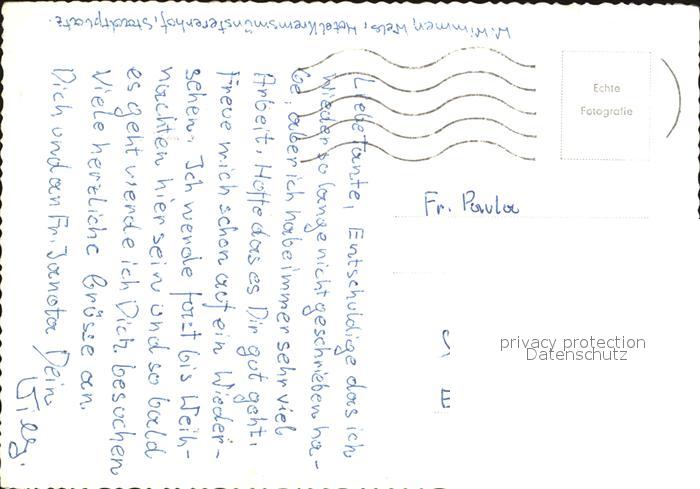 W. Wimmer, Wels, Hotel Kremsmünstererhof, Stadtplatz.
Liebe Tante, Entschuldige das ich
wieder so lange nicht geschrieben ha-
be, aber ich habe immer sehr viel
Arbeit. Hoffe das es Dir gut geht.
Freue mich schon auf ein Wieder-
sehen. Ich werde fast bis Weih-
nachten hier sein und so bald
es geht werde ich Dich besuchen
Viele herzliche Grüsse an
Dich und an Fr. Janota Dein
Willy.
Echte
Fotografie
Fr. Paula
privacy protection
Datenschutz